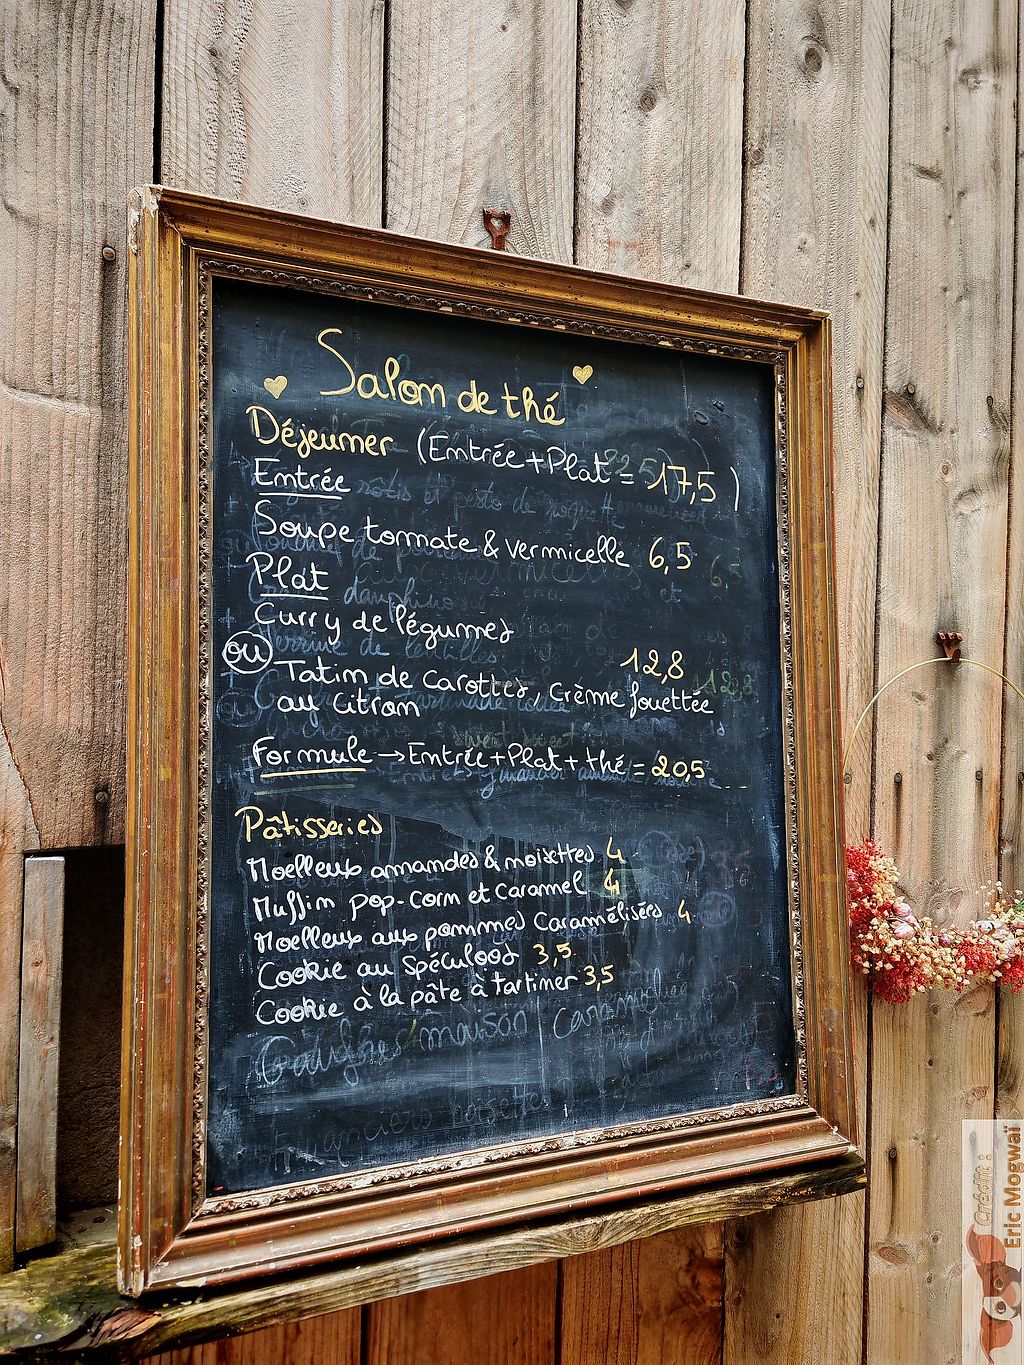 Salon de thé
Déjeuner (Entrée + Plat = 17,5)
Entrée
Soupe tomate & vermicelle 6,5
Plat
Curry de légumes
ou 12,8
Tatin de carottes, crème fouettée
au citron
Formule → Entrée + Plat + thé = 20,5
Pâtisseries
Moelleux amandes & noisettes 4
Muffin pop-corn et caramel 4
Moelleux aux pommes caramélisées 4
Cookie au spéculoos 3,5
Cookie à la pâte à tartiner 3,5
Crédit :
Eric Mogwaï